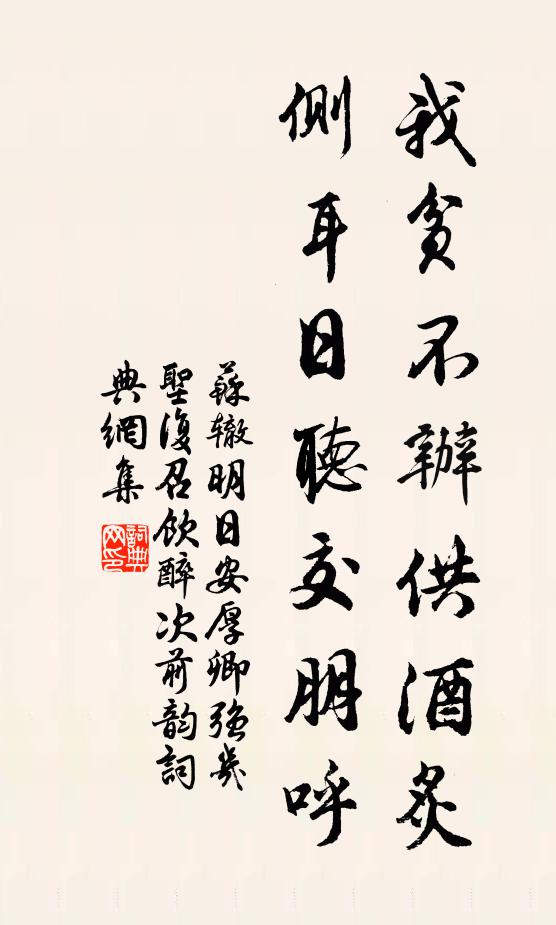 我貧不辦供酒炙
側耳日聽交朋呼
蘇轍明日安厚卿強幾
聖復召飲醉次前韵詞
典網集
詞典網印